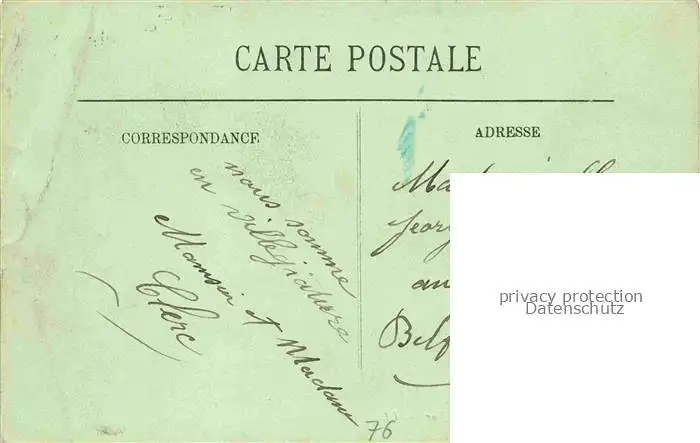 CARTE POSTALE
CORRESPONDANCE
nous somme
en villegiature
Mamsieu et Madame
Clerc
ADRESSE
Geor
au
Belf
privacy protection
Datenschutz
76